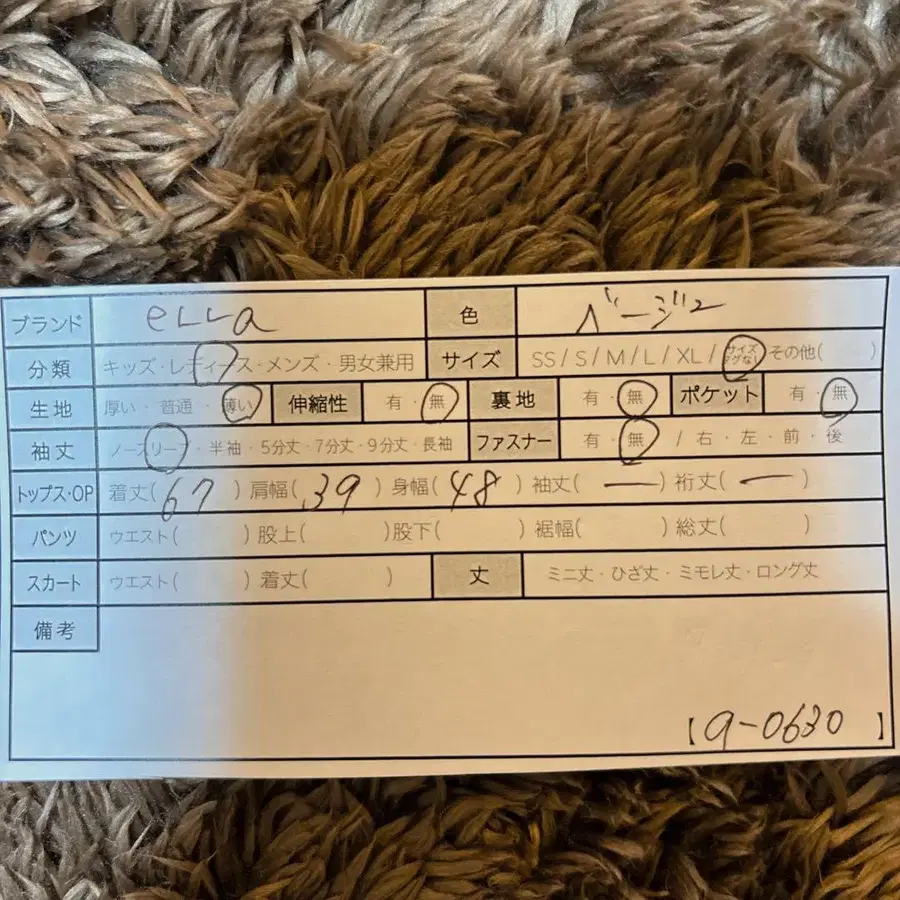 ブランド eLLa 色 ベージュ
分類 キッズ・レディース・メンズ・男女兼用 サイズ SS / S / M / L / XL / サイズタグなし その他( )
生地 厚い・普通・薄い 伸縮性 有・無 裏地 有・無 ポケット 有・無
袖丈 ノースリーブ・半袖・5分丈・7分丈・9分丈・長袖 ファスナー 有・無 / 右・左・前・後
トップス・OP 着丈(67) 肩幅(39) 身幅(48) 袖丈(ー) 裄丈(ー)
パンツ ウエスト( ) 股上( ) 股下( ) 裾幅( ) 総丈( )
スカート ウエスト( ) 着丈( ) 丈 ミニ丈・ひざ丈・ミモレ丈・ロング丈
備考
【a-0630】